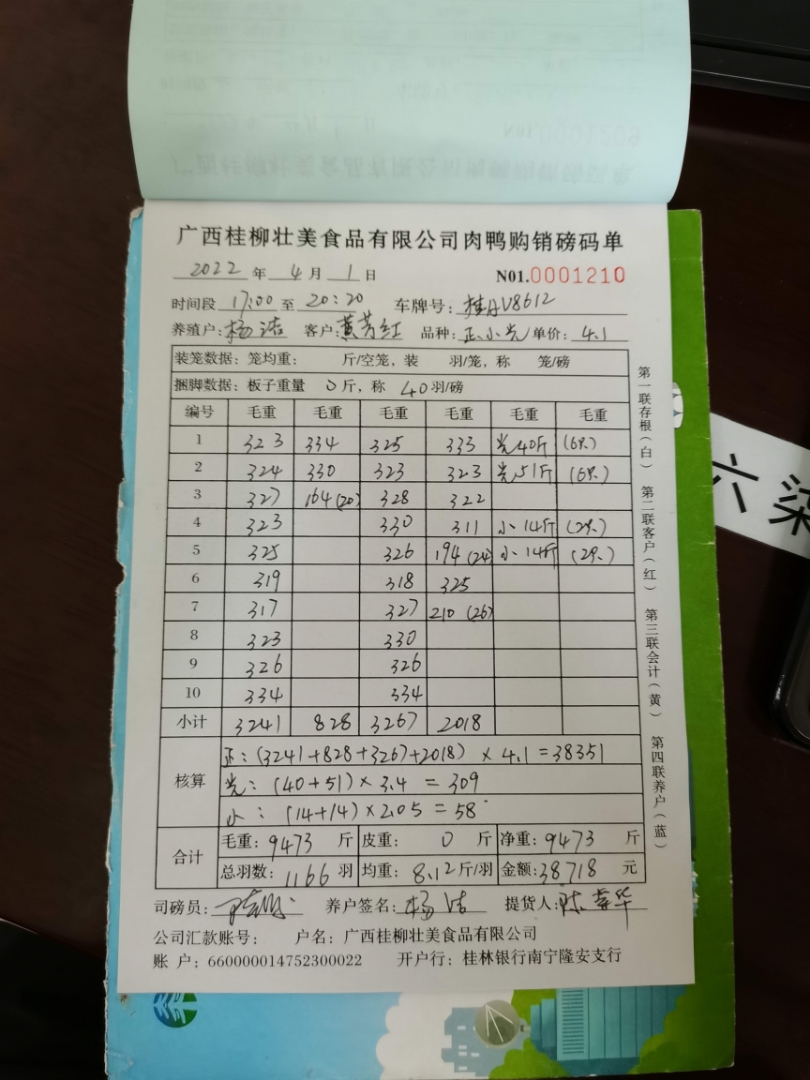 广西桂柳壮美食品有限公司肉鸭购销磅码单
2022 年 4 月 1 日 N01.0001210
时间段 17:00 至 20:20 车牌号: 桂AV8612
养殖户: 杨洁 客户: 黄芳红 品种: 正、小、光 单价: 4.1
装笼数据: 笼均重: 斤/空笼, 装 羽/笼, 称 笼/磅
捆脚数据: 板子重量 0 斤, 称 40 羽/磅
编号 毛重 毛重 毛重 毛重 毛重 毛重
1 323 334 325 333 光40斤 (6只)
2 324 330 323 323 光51斤 (6只)
3 327 164(20) 328 322
4 323 330 311 小14斤 (2只)
5 325 326 194(24) 小14斤 (2只)
6 319 318 325
7 317 327 210 (26)
8 323 330
9 326 326
10 334 334
小计 3241 828 3267 2018
核算
正: (3241+828+3267+2018) × 4.1 = 38351
光: (40+51)×3.4 = 309
小: (14+14)×2.05 = 58
合计
毛重: 9473 斤 皮重: 0 斤 净重: 9473 斤
总羽数: 1166 羽 均重: 8.12 斤/羽 金额: 38718 元
司磅员: 养户签名: 杨洁 提货人:
公司汇款账号: 户名: 广西桂柳壮美食品有限公司
账 户: 660000014752300022 开户行: 桂林银行南宁隆安支行
第一联存根(白) 第二联客户(红) 第三联会计(黄) 第四联养户(蓝)
六染